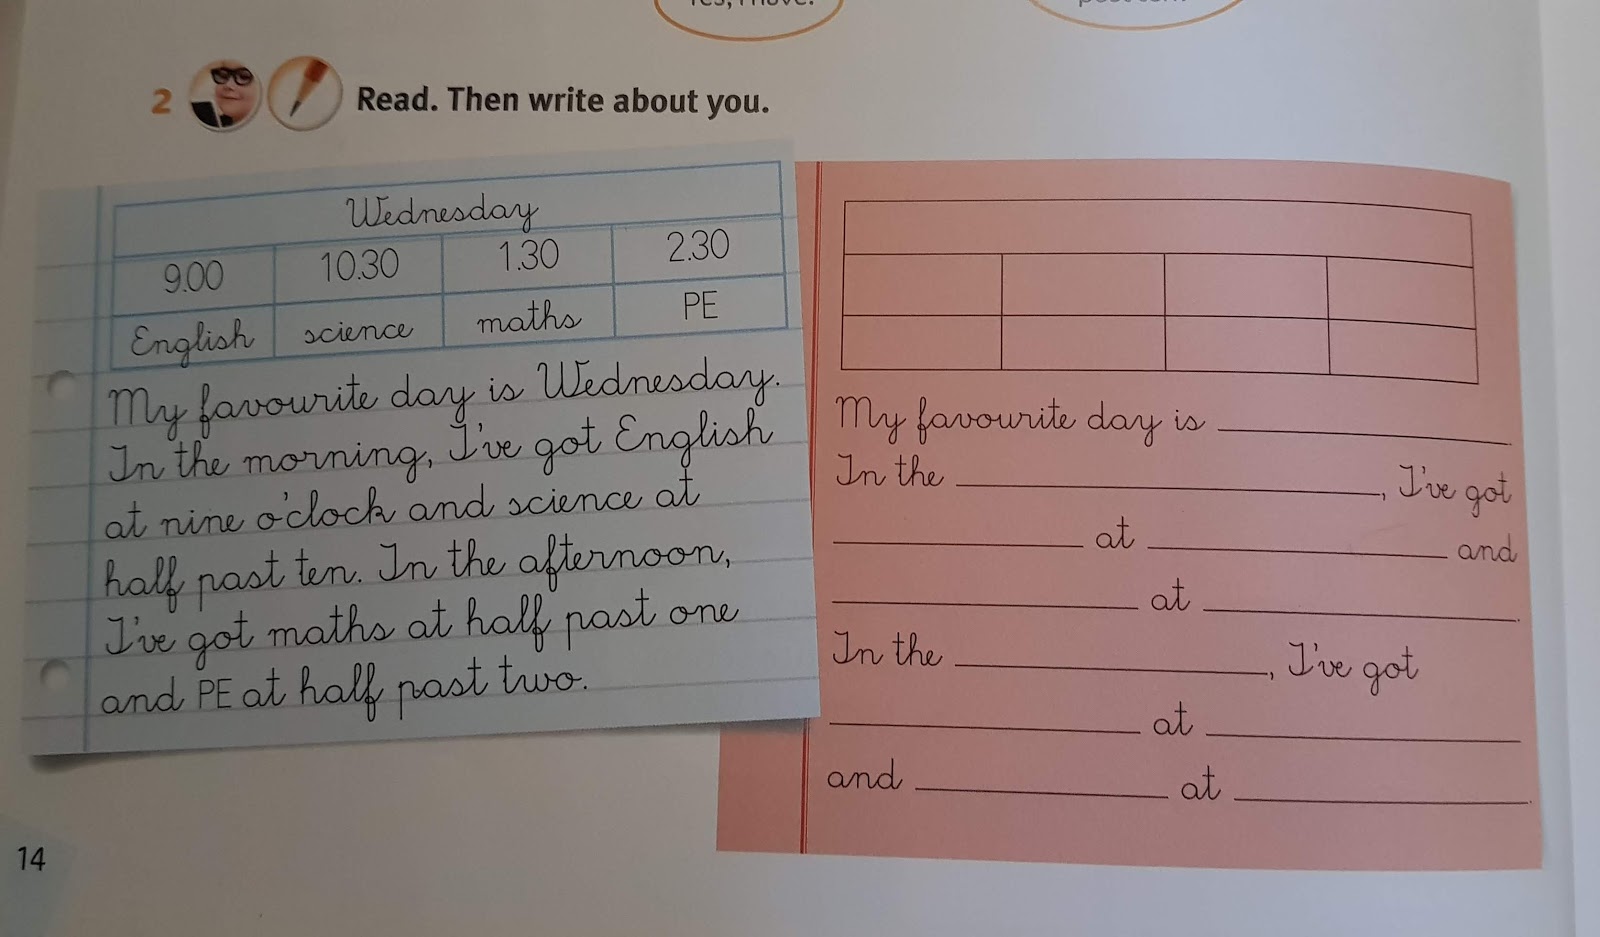 Yes, I have.
2 Read. Then write about you.
Wednesday
9.00 10.30 1.30 2.30
English science maths PE
My favourite day is Wednesday.
In the morning, I've got English
at nine o'clock and science at
half past ten. In the afternoon,
I've got maths at half past one
and PE at half past two.
My favourite day is
In the , I've got
at and
at .
In the , I've got
at
and at .
14